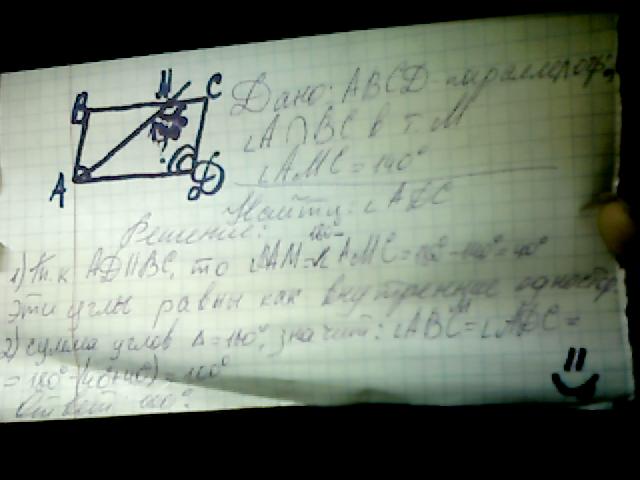 B M C
A D
Дано: ABCD - параллело
∠A ∩ BC в т. M
∠AMC = 140°
Найти: ∠ADC
Решение:
1) т.к AD||BC, то = 180° - ∠AMC = 180° - 140° = 40°
Эти углы равны как внутренние одностор
2) сумма углов Δ = 180°, значит: ∠ABC = ∠ADC =
= 180° - (40° + 40°) = 100°
Ответ 100°.